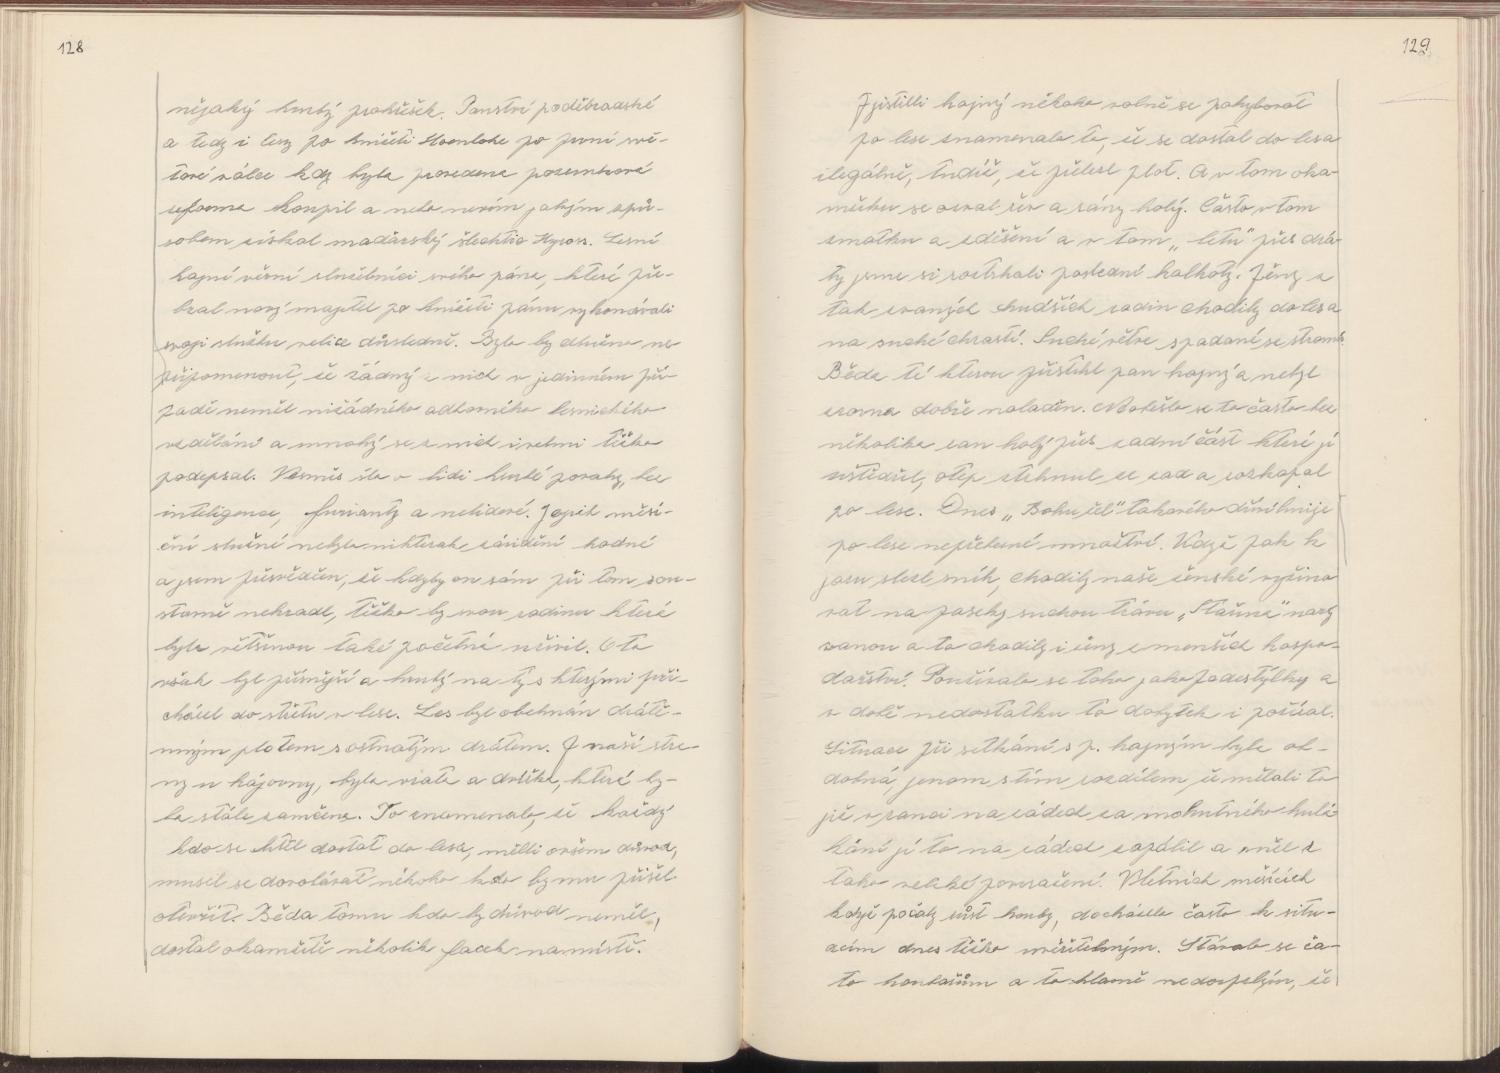 128
nějaký hrubý prohřešek. Panství poděbradské
a tedy i lesy po knížeti Hoenlohe po první svě-
tové válce kdy byla provedena pozemková
reforma koupil a nebo nevím jakým způ-
sobem získal maďarský šlechtic Kyros. Lesní
hajní věrní služebníci svého pána, které pře-
bral nový majitel po knížeti pánu vykonávali
svoji službu velice důsledně. Bylo by chybno ne
připomenout, že žádný z nich v jediném pří-
padě neměl nižádného odborného lesnického
vzdělání a mnohý se z nich i velmi těžko
podepsal. Vesměs šlo o lidi hrubé povahy, bez
inteligence, furianty a nelidové. Jejich měsí-
ční služné nebylo nikterak závidění hodné
a jsem přesvědčen, že kdyby on sám při tom sou-
stavně nekradl, těžko by svou rodinu které
byla většinou také početná uživil. O to
však byl přísnější a hrubý na ty s kterými při-
cházel do střetu v lese. Les byl obehnán dráte-
ným plotem s ostnatým drátem. Z naší stra-
ny u hájovny, byla vrata a dvířka, které by-
la stále zamčena. To znamenalo, že každý
kdo se chtěl dostat do lesa, mělli ovšem důvod,
musel se dovolávat někoho kdo by mu přišel
otevřít. Běda tomu kdo by důvod neměl,
dostal okamžitě několik facek na místě.
129
Zjistilli hajný někoho volně se pohybovat
po lese znamenalo to, že se dostal do lesa
ilegálně, tudíž, že přelezl plot. A v tom oka-
mžiku se ozval řev a rány holý. Často v tom
zmatku a zděšení a v tom „letu“ přes drá-
ty jsme si roztrhali poslední kalhoty. Ženy z
tak zvaných chudších rodin chodily do lesa
na suché chrastí. Suché větve spadané se stromů.
Běda té kterou přistihl pan hajný a nebyl
zrovna dobře naladěn. Neobešlo se to často bez
několika ran holý přes zadní část které jí
uštědřil, otep strhnul ze zad a rozkopal
po lese. Dnes „Bohužel“ takového dříví hnije
po lese nepřeberné množství. Když pak k
jaru slezl sníh, chodily naše ženské vyžína
vat na paseky suchou trávu „Stařina“ nazý
vanou a to chodily i ženy z menších hospo-
dářství. Používalo se toho jako podestýlky a
v době nedostatku to dobytek i požíral.
Situace při setkání s p. hajným byla ob-
dobná, jenom s tím rozdílem, že mělali to
již v ranci na zádech za mohutného hulá-
kání jí to na zádech zapálil a měl z
toho veliké povražení. V letních měsících
když počaly růst houby, docházelo často k situ-
acím dnes těžko uvěřitelným. Stávalo se ča-
to houbařům a to hlavně nedospělým, že